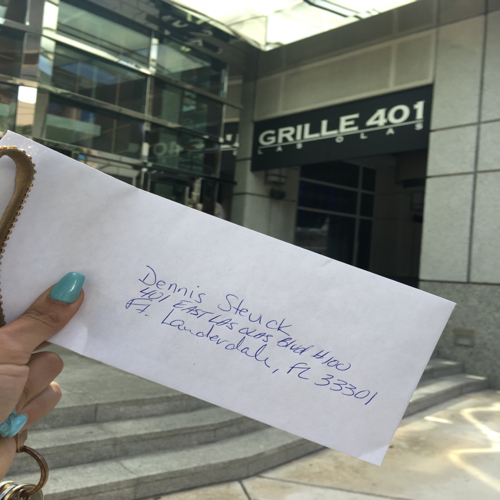 GRILLE 401
LAS OLAS
Dennis Steuck
401 EAST LAS OLAS Blvd #100
Ft. Lauderdale, FL 33301